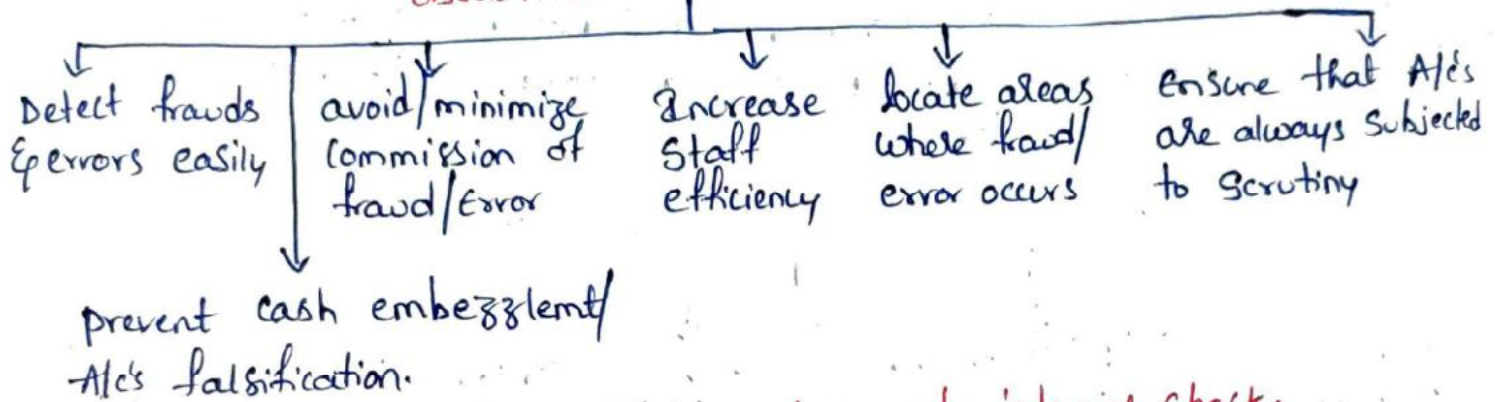 Detect frauds
& errors easily
avoid/minimize
Commission of
fraud/Error
Increase
Staff
efficiency
locate areas
where fraud/
error occurs
Ensure that A/c's
are always Subjected
to Scrutiny
prevent cash embezzlemt/
A/c's falsification.
check